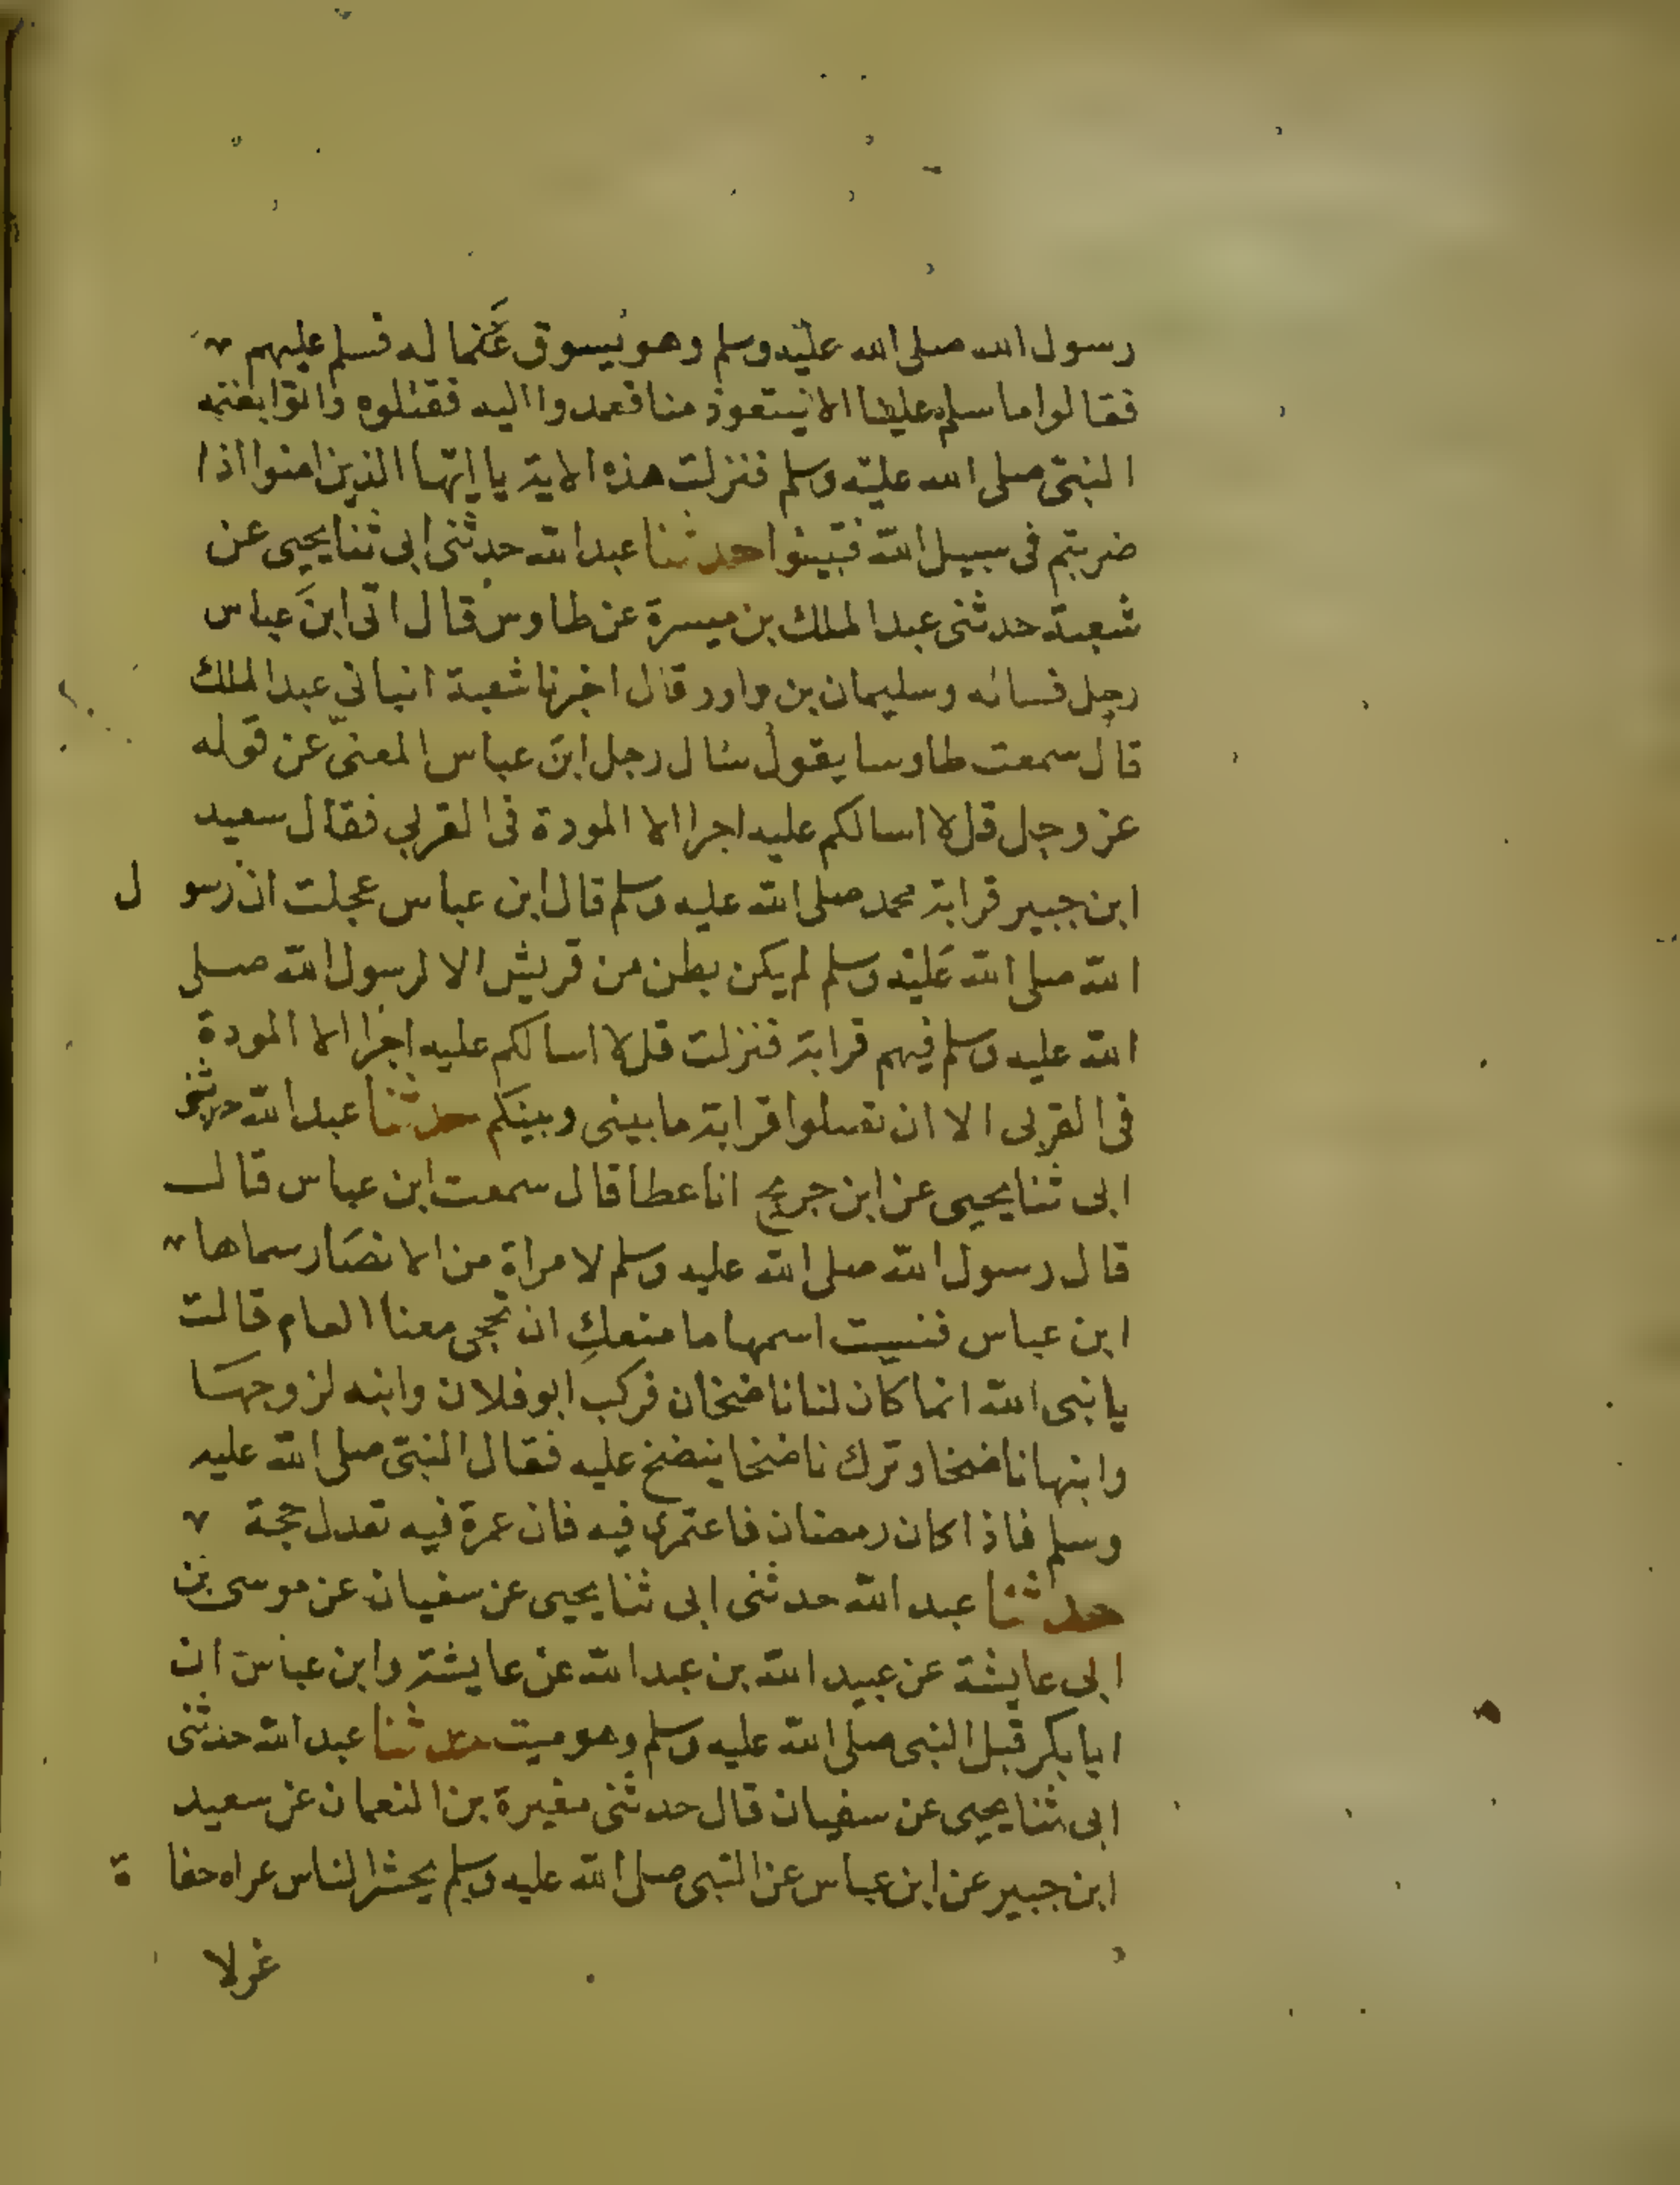 رسول الله صلى الله عليه وسلم وهو يسوق غنما له فسلم عليهم
فقالوا ما سلم علينا الا ليستعوذ منا فعمدوا اليه فقتلوه واتوا بغنمه
النبي صلى الله عليه وسلم فنزلت هذه الاية يا ايها الذين امنوا اذا
ضربتم في سبيل الله فتبينوا حدثنا عبد الله حدثني ابي ثنا يحيى عن
شعبة حدثني عبد الملك بن ميسرة عن طاوس قال اتى ابن عباس
رجل فساله وسليمان بن داود قال اخبرنا شعبة انباني عبد الملك
قال سمعت طاوسا يقول سال رجل ابن عباس المعنى عن قوله
عز وجل قل لا اسالكم عليه اجرا الا المودة في القربى فقال سعيد
ابن جبير قرابة محمد صلى الله عليه وسلم قال ابن عباس عجلت ان رسو ل
الله صلى الله عليه وسلم لم يكن بطن من قريش الا لرسول الله صلى
الله عليه وسلم فيهم قرابة فنزلت قل لا اسالكم عليه اجرا الا المودة
في القربى الا ان تصلوا قرابة ما بيني وبينكم حدثنا عبد الله حدثني
ابي ثنا يحيى عن ابن جريج انا عطا قال سمعت ابن عباس قال
قال رسول الله صلى الله عليه وسلم لامراة من الانصار سماها
ابن عباس فنسيت اسمها ما منعكِ ان تحجي معنا العام قالت
يا نبي الله انما كان لنا ناضخان فركب ابو فلان وابنه لزوجها
وابنها ناضخا وترك ناضخا ينضخ عليه فقال النبي صلى الله عليه
وسلم فاذا كان رمضان فاعتمري فيه فان عمرة فيه تعدل حجة
حدثنا عبد الله حدثني ابي ثنا يحيى عن سفيان عن موسى بن
ابي عايشة عن عبيد الله بن عبد الله عن عايشة وابن عباس ان
ابا بكر قبل النبي صلى الله عليه وسلم وهو ميت حدثنا عبد الله حدثني
ابي ثنا يحيى عن سفيان قال حدثني مغيرة بن النعمان عن سعيد
ابن جبير عن ابن عباس عن النبي صلى الله عليه وسلم يحشر الناس عراه حفا ة
غرلا